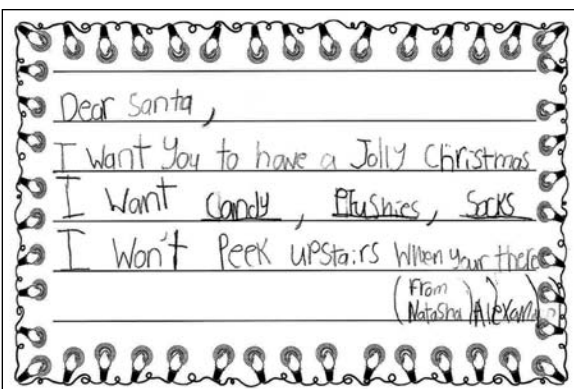 Dear Santa,
I Want You to have a Jolly Christmas
I Want Candy, Plushies, Socks
I Won't Peek upstairs When your there
(From
Natasha)